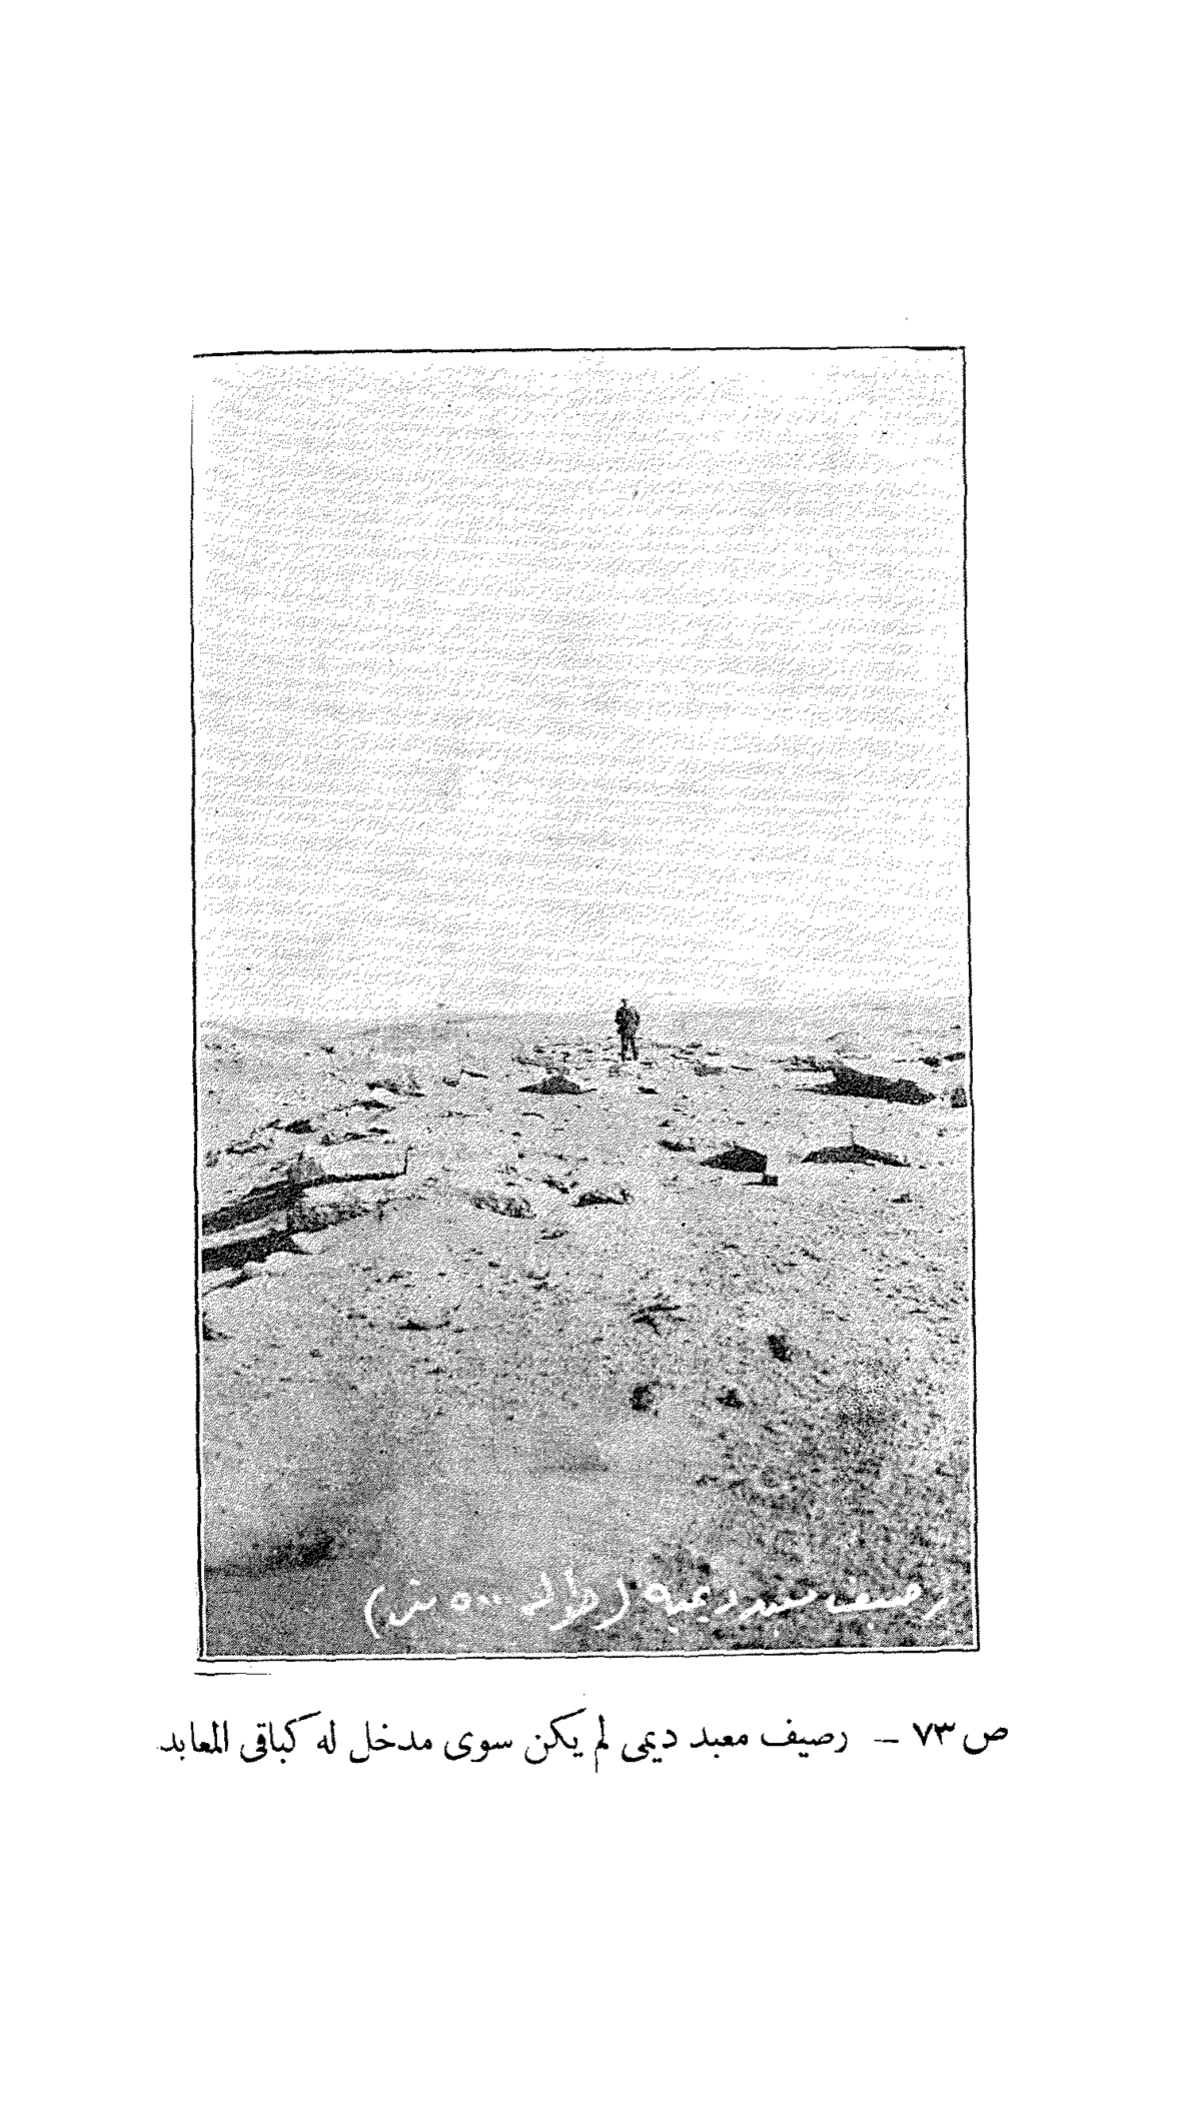 رصيف معبد ديميه (طوله ٥٠٠ متر)
ص ٧٣ — رصيف معبد ديمى لم يكن سوى مدخل له كباقى المعابد